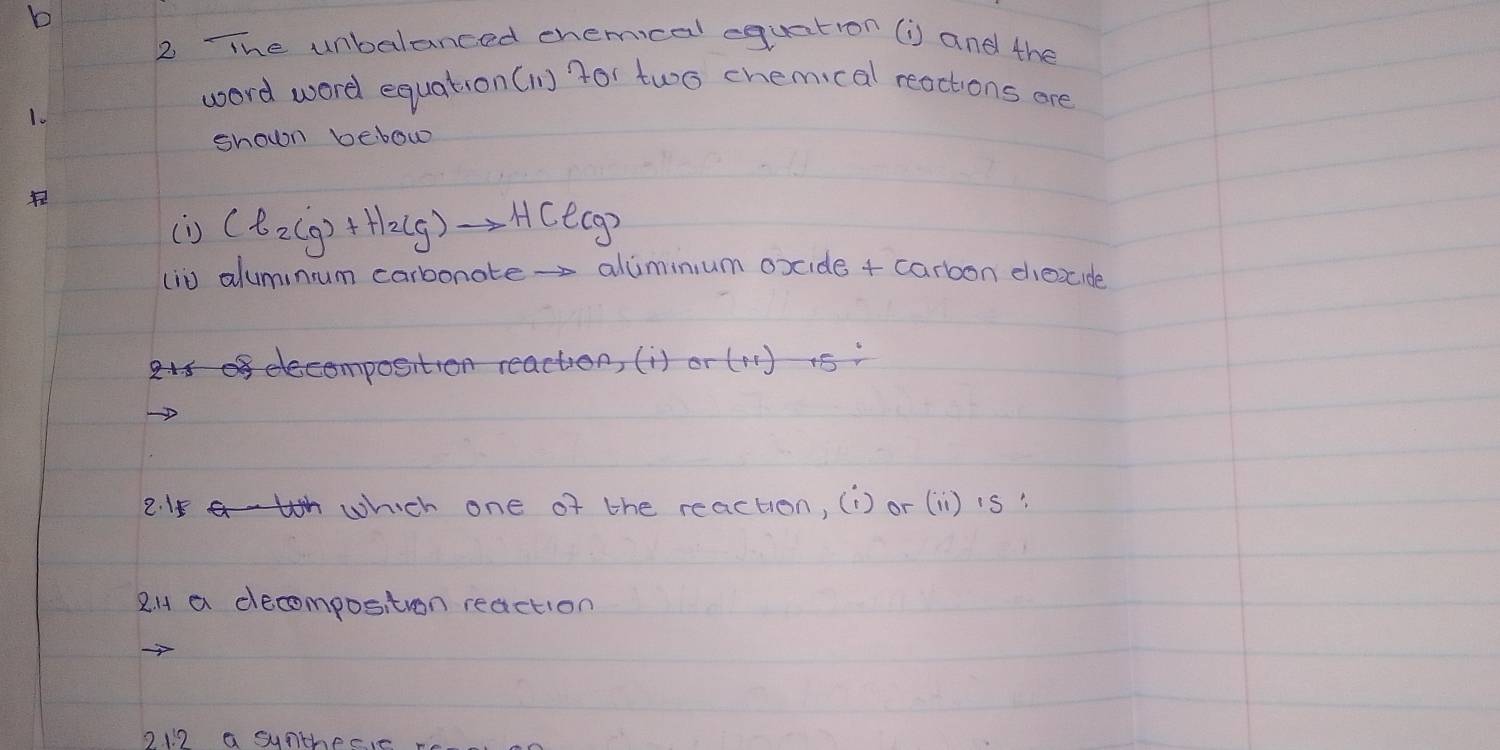 b
2 The unbalanced chemical equation (i) and the
word word equation (ii) for two chemical reactions are
1.
shown below
(i) Cl2(g) + H2(g) → HCl(g)
(ii) aluminium carbonate → aluminium oxide + carbon dioxide
decomposition reaction, (i) or (ii) is :
→
2.1 which one of the reaction, (i) or (ii) is :
2.1.1 a decomposition reaction
→
2.1.2 a synthesis